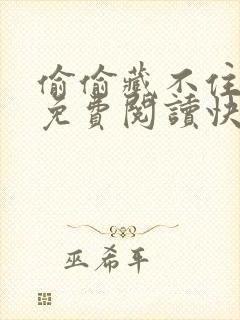 偷偷藏不住
免費閱讀快
巫希平